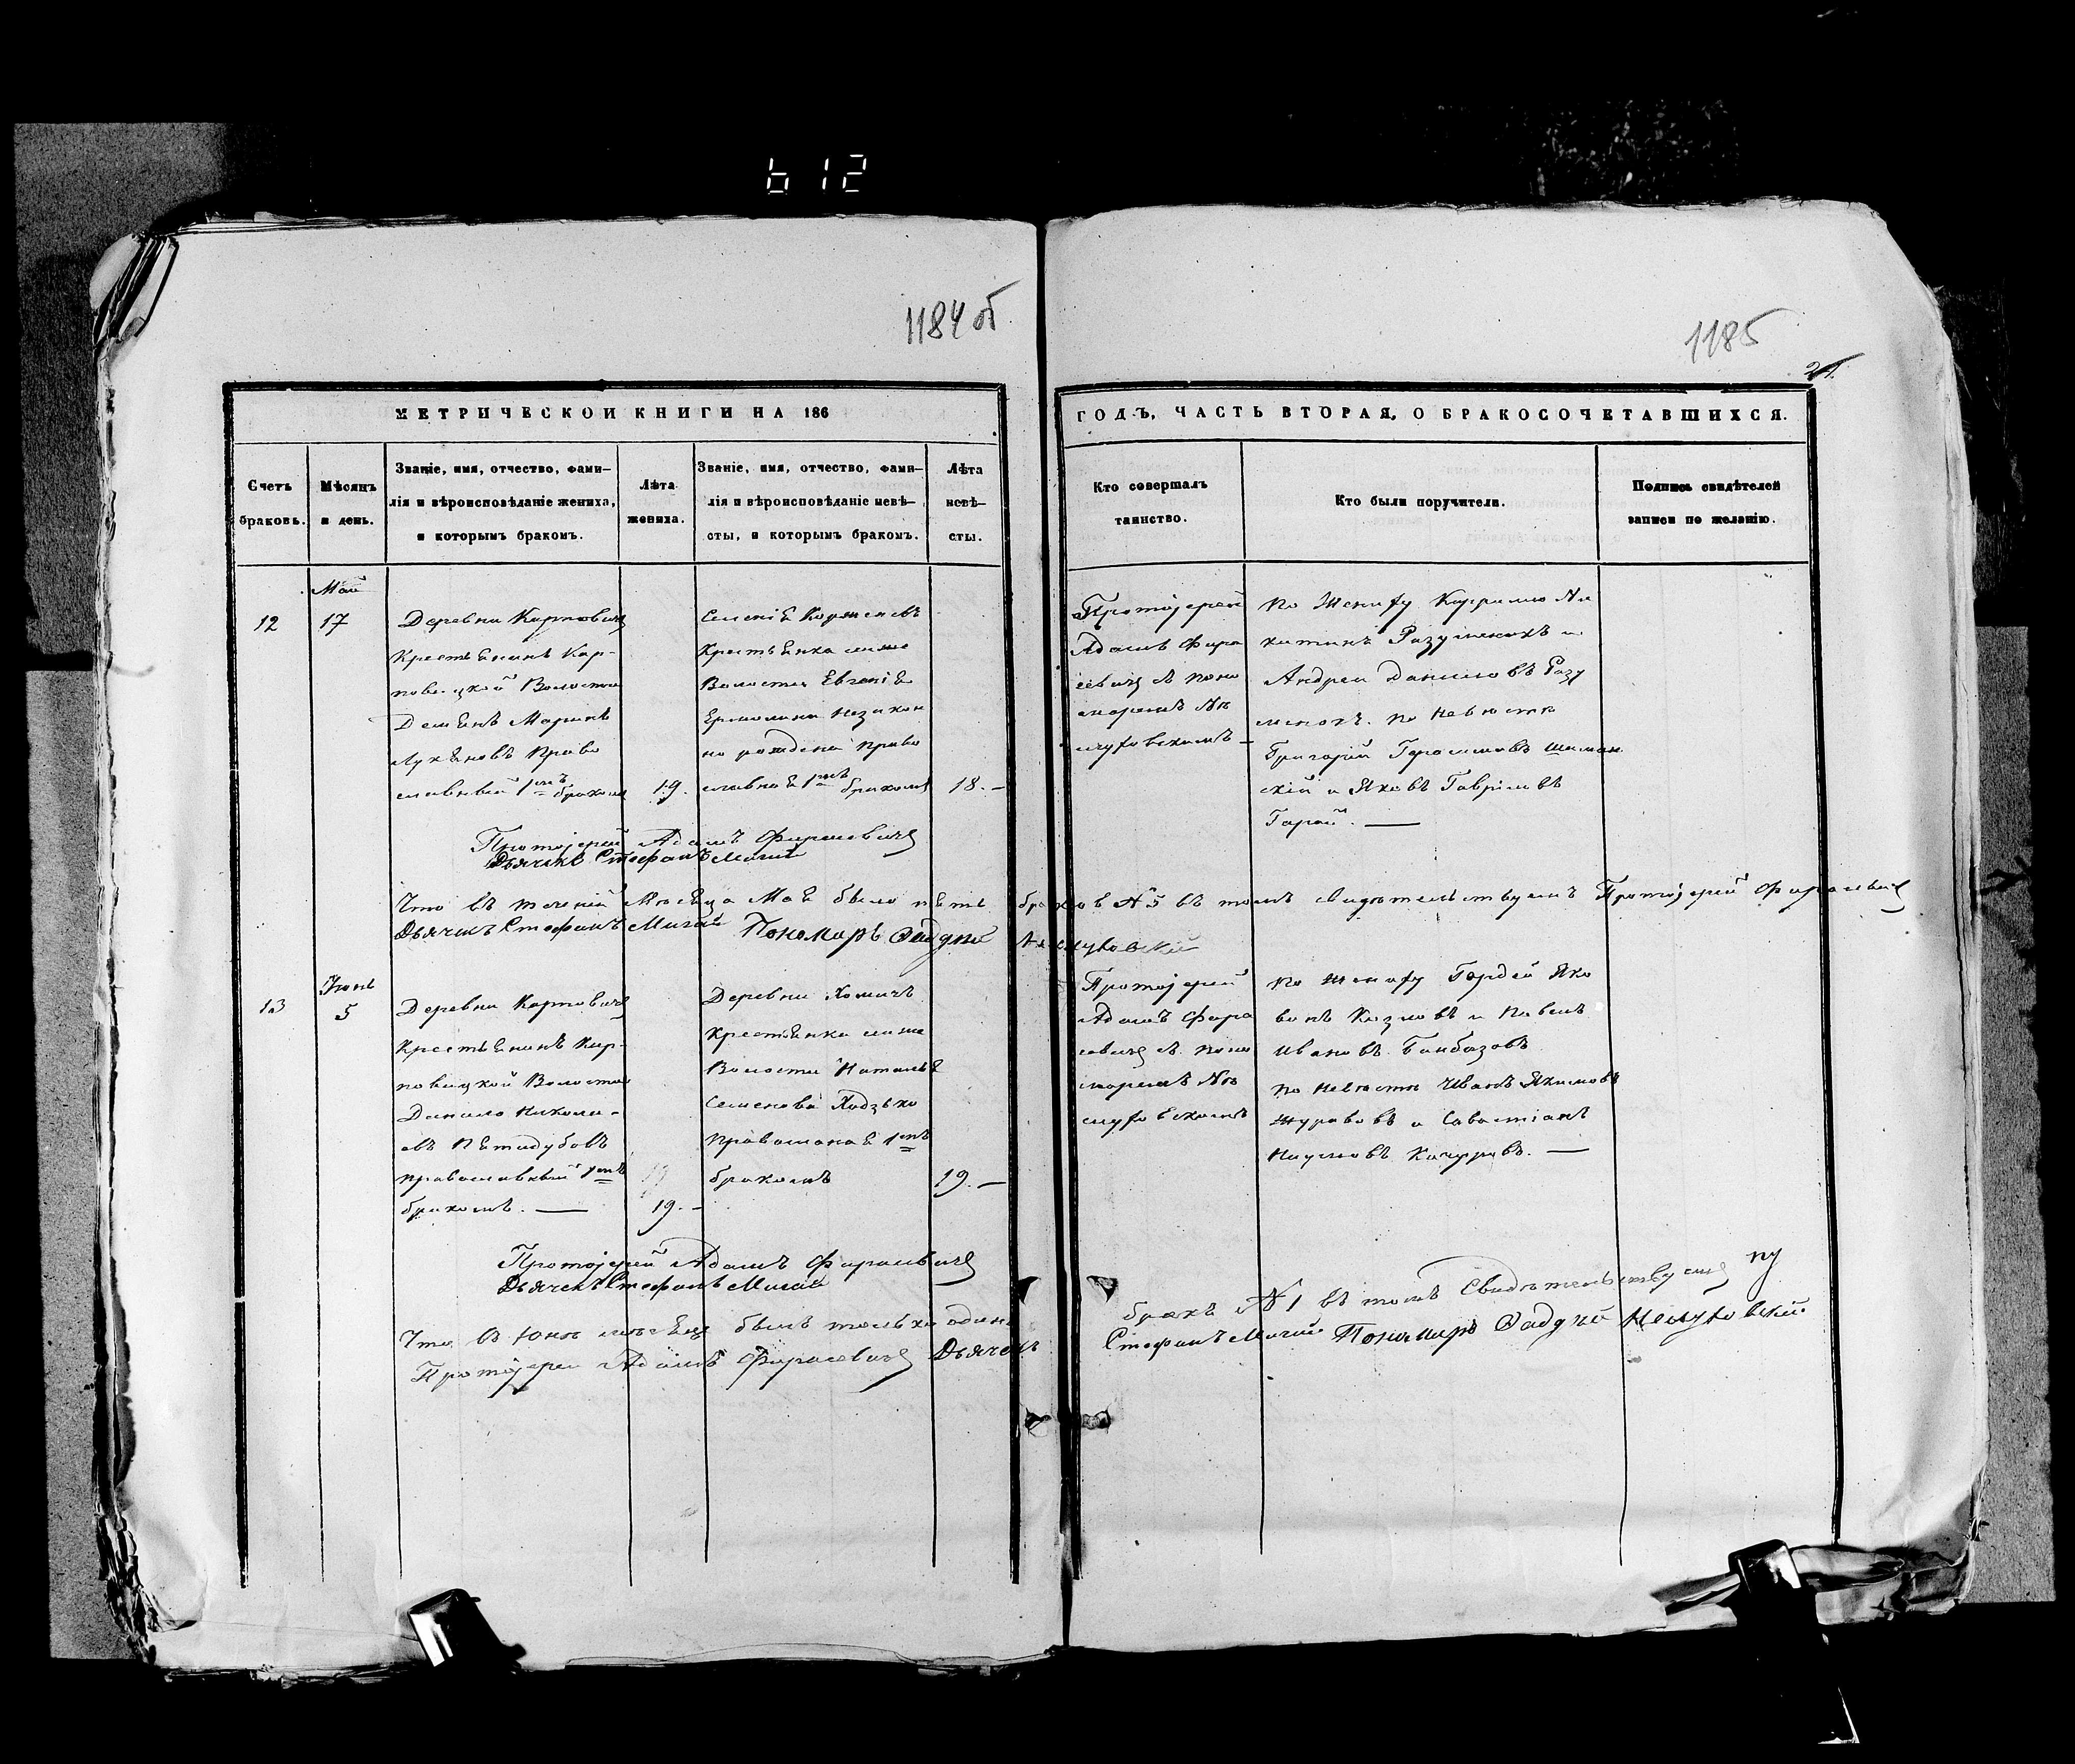 612
1184 об
1185
21.
МЕТРИЧЕСКОЙ КНИГИ НА 186
ГОДЪ, ЧАСТЬ ВТОРАЯ, О БРАКОСОЧЕТАВШИХСЯ.
Счетъ
браковъ.
Мѣсяцъ
и день.
Званіе, имя, отчество, фами-
лія и вѣроисповѣданіе жениха,
и которымъ бракомъ.
Лѣта
жениха.
Званіе, имя, отчество, фами-
лія и вѣроисповѣданіе невѣ-
сты, и которымъ бракомъ.
Лѣта
невѣ-
сты.
Кто совершалъ
таинство.
Кто были поручители.
Подпись свидѣтелей
записи по желанію.
12
Май
17
Деревни Карповичъ
Крестьянинъ Кар-
повецкой Волости
Демьянъ
Лукьяновъ Право
славный 1мъ бракомъ
19.
Крестьянка
Волости Евгенія
Ермолина незакон
но рождена право
славная 1мъ бракомъ
18. —
Протоіерей
Адамъ Фира
севичъ съ поно
маремъ Не
слуховскимъ —
по Жениху Ни
китинъ Разуменокъ и
Андрей Даниловъ Разу
менокъ. по Невѣстѣ
Григорій Герасимовъ Шиман
скій и Яковъ Гавріловъ
Гарай. —
Протоіерей Адамъ Фирасевичъ
Дьячекъ Стефанъ Мигай
Что въ теченій Мѣсяца Мая было пять браковъ № 5 въ томъ свидѣтельствуемъ Протоіерей Фирасевичъ
Дьячекъ Стефанъ Мигай Пономарь Фадѣй Неслуховскій
13
Іюнь
5
Деревни Карповичъ
Крестьянинъ Кар-
повецкой Волости
Данило Никола-
евъ Пятидубовъ
православный 1мъ
бракомъ. —
19. —
Деревни Хомичъ
Крестьянка
Волости Наталья
Семенова Ходзько
1мъ
бракомъ
19. —
Протоіерей
Адамъ Фира
севичъ съ поно
маремъ Не
слуховскимъ
по Жениху Гордей Яко
вовъ Козловъ и Павелъ
Ивановъ
по Невѣстѣ Иванъ Якимовъ
Журавовъ и Савостіанъ
Наумовъ —
Протоіерей Адамъ Фирасевичъ
Дьячекъ Стефанъ Мигай
Что въ Юнѣ мѣсяцѣ былъ только одинъ бракъ № 1 въ томъ Свидѣтельствуемъ
Протоіерей Адамъ Фирасевичъ Дьячекъ Стефанъ Мигай Пономарь Фадѣй Неслуховскій